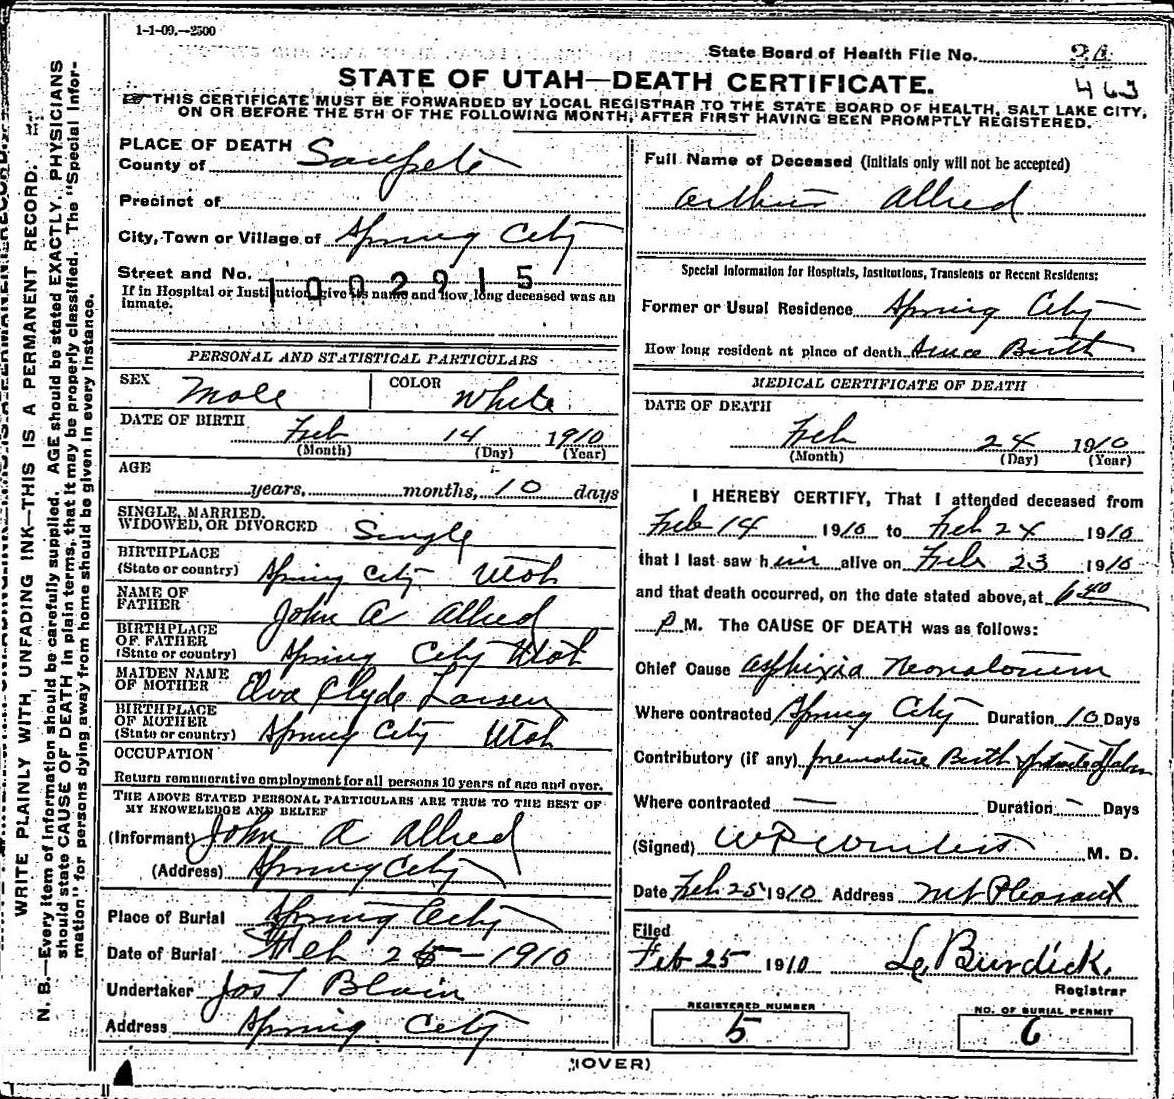 1-1-09.—2500
State Board of Health File No. 24
463
STATE OF UTAH—DEATH CERTIFICATE.
☞THIS CERTIFICATE MUST BE FORWARDED BY LOCAL REGISTRAR TO THE STATE BOARD OF HEALTH, SALT LAKE CITY,
ON OR BEFORE THE 5TH OF THE FOLLOWING MONTH, AFTER FIRST HAVING BEEN PROMPTLY REGISTERED.
WRITE PLAINLY WITH, UNFADING INK—THIS IS A PERMANENT RECORD.
N. B.—Every item of information should be carefully supplied. AGE should be stated EXACTLY. PHYSICIANS
should state CAUSE OF DEATH in plain terms, that it may be properly classified. The "Special Infor-
mation" for persons dying away from home should be given in every instance.
PLACE OF DEATH
County of Sanpete
Precinct of
City, Town or Village of Spring City
Street and No.
1002915
If in Hospital or Institution, give its name and how long deceased was an
inmate.
PERSONAL AND STATISTICAL PARTICULARS
SEX Male COLOR White
DATE OF BIRTH Feb 14 1910
(Month) (Day) (Year)
AGE
years, months, 10 days
SINGLE, MARRIED,
WIDOWED, OR DIVORCED Single
BIRTHPLACE
(State or country) Spring City Utah
NAME OF
FATHER John A Allred
BIRTHPLACE
OF FATHER
(State or country) Spring City Utah
MAIDEN NAME
OF MOTHER Elva Clyde Larsen
BIRTHPLACE
OF MOTHER
(State or country) Spring City Utah
OCCUPATION
Return remunerative employment for all persons 10 years of age and over.
THE ABOVE STATED PERSONAL PARTICULARS ARE TRUE TO THE BEST OF
MY KNOWLEDGE AND BELIEF
(Informant) John A Allred
(Address) Spring City
Place of Burial Spring City
Date of Burial Feb 25 - 1910
Undertaker Jos T Blain
Address Spring City
Full Name of Deceased (Initials only will not be accepted)
Arthur Allred
Special Information for Hospitals, Institutions, Transients or Recent Residents:
Former or Usual Residence Spring City
How long resident at place of death Since Birth
MEDICAL CERTIFICATE OF DEATH
DATE OF DEATH
Feb 24 1910
(Month) (Day) (Year)
I HEREBY CERTIFY, That I attended deceased from
Feb 14 1910 to Feb 24 1910
that I last saw him alive on Feb 23 1910
and that death occurred, on the date stated above, at 6 40
P M. The CAUSE OF DEATH was as follows:
Chief Cause Asphixia Neonatorum
Where contracted Spring City Duration 10 Days
Contributory (if any) premature Birth
Where contracted — Duration - Days
(Signed) M. D.
Date Feb 25 1910 Address Mt Pleasant
Filed
Feb 25 1910 Burdick.
Registrar
REGISTERED NUMBER
5
NO. OF BURIAL PERMIT
6
(OVER)